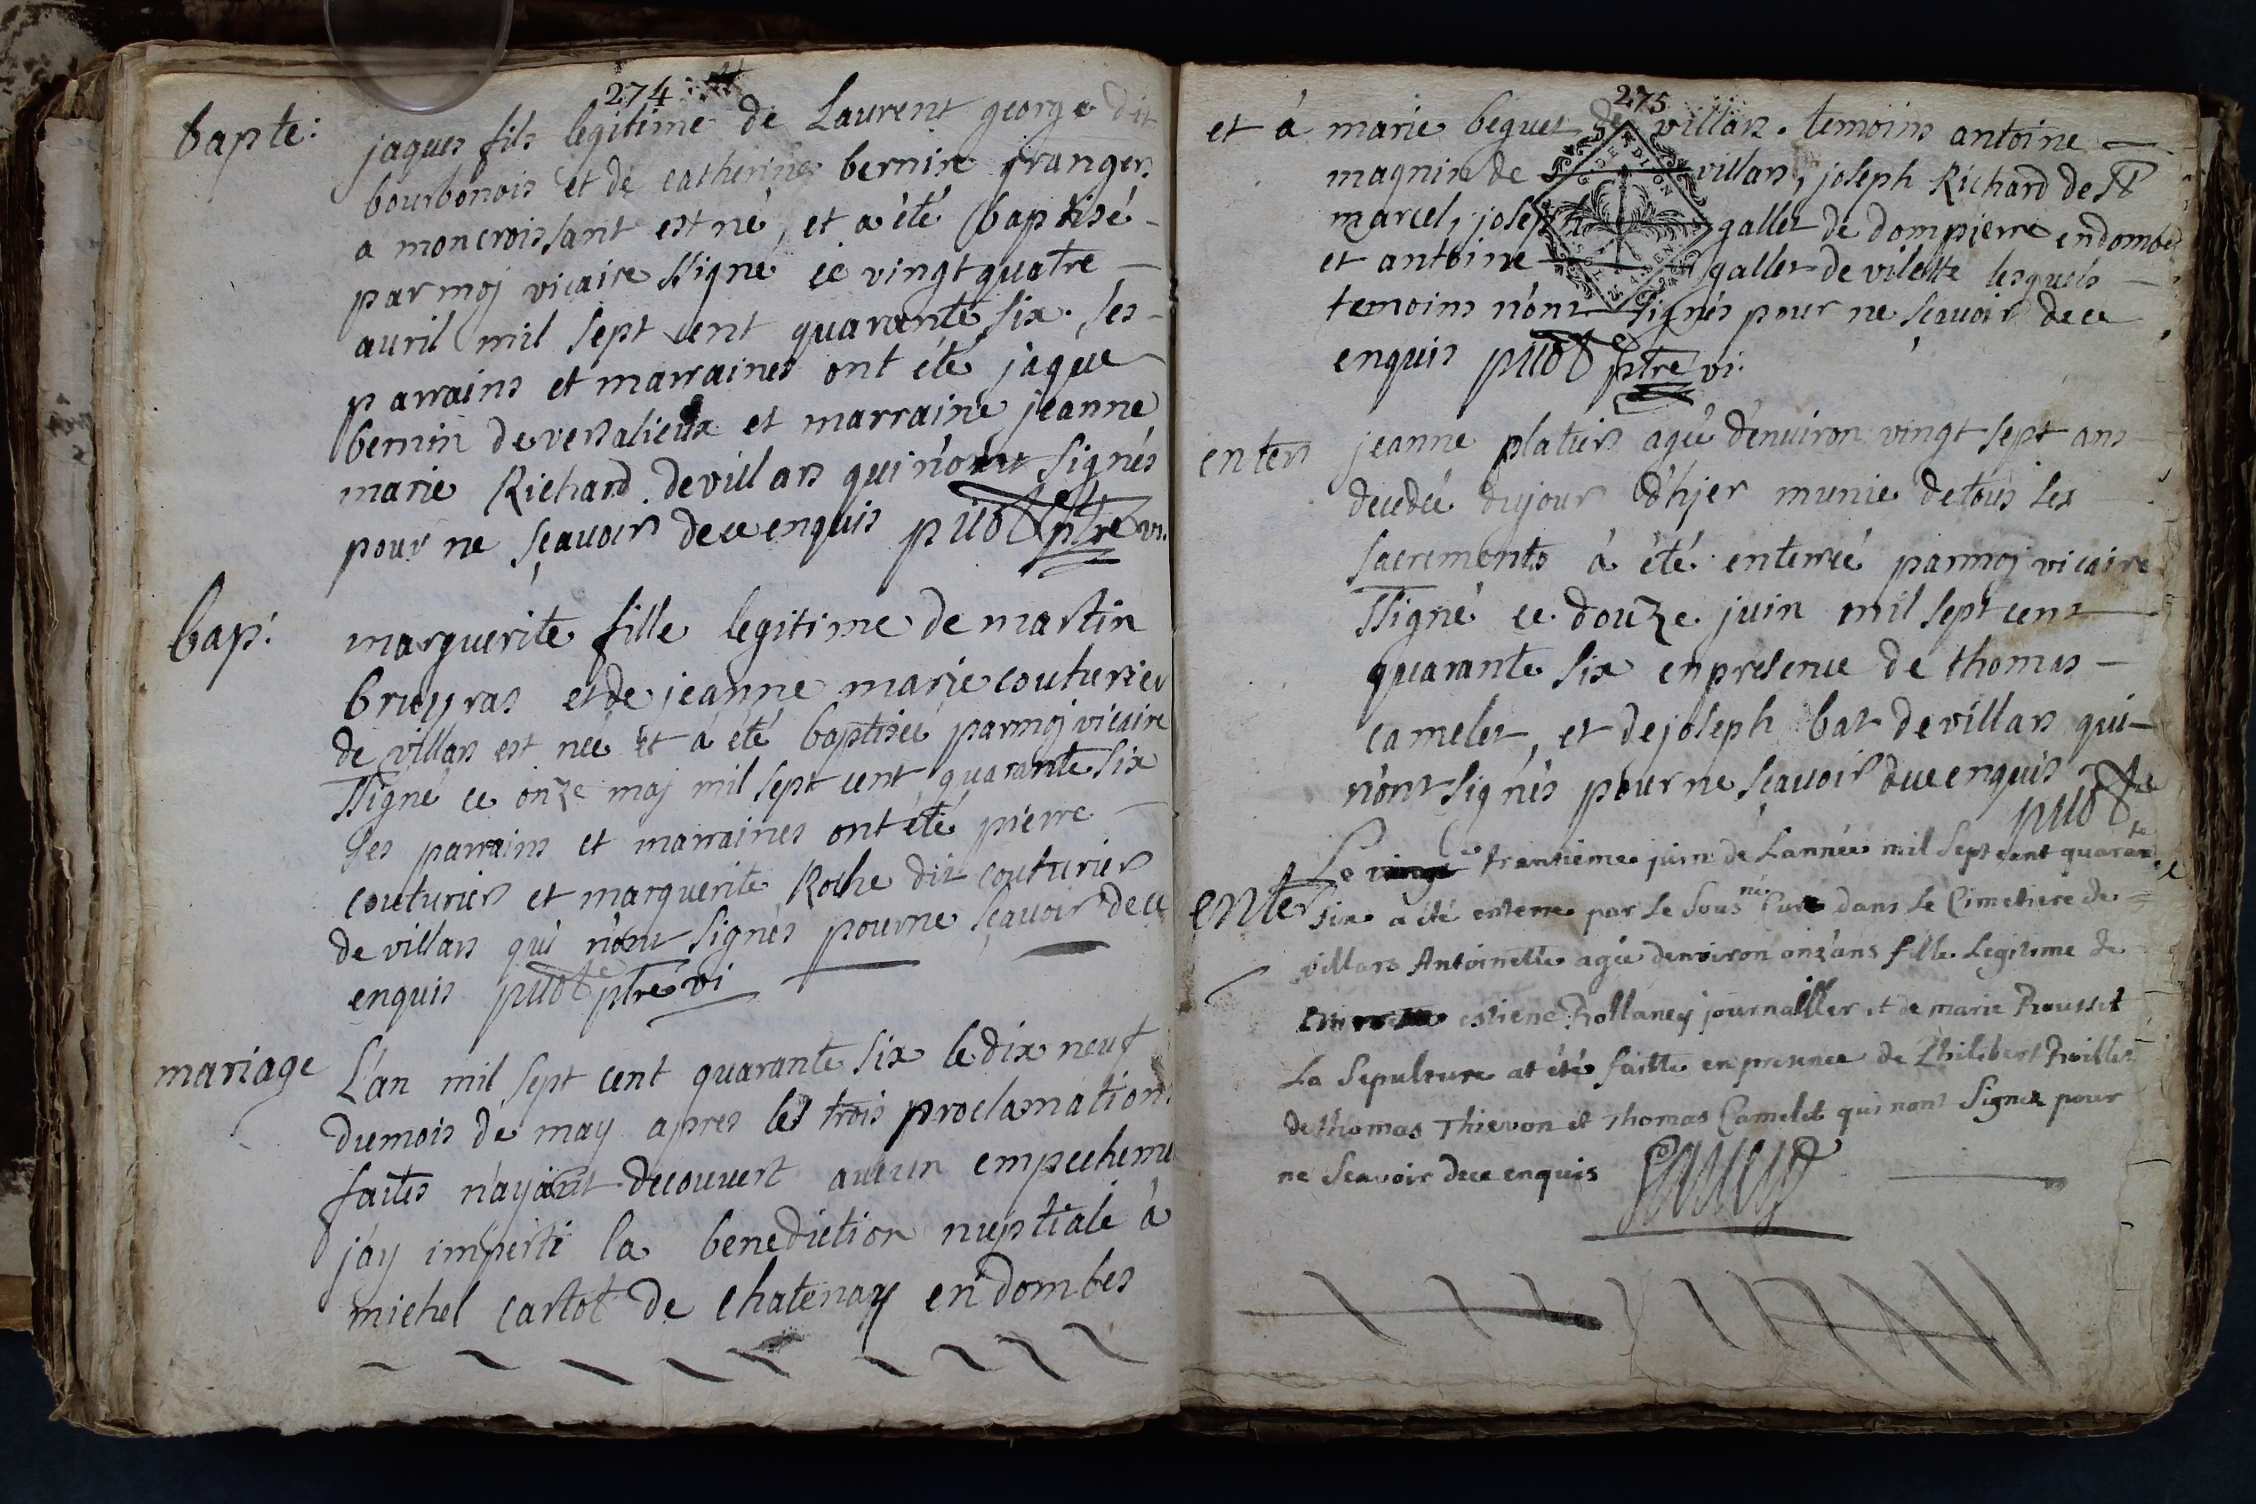 274
bapte: jaques fils legitime de Laurent george dit
bourbonois et de catherine bernin granger
a moncroissant est né, et a été baptisé
par moj vicaire ssigné ce vingt quatre
auril mil sept cent quarante six. ses
parrains et marraines ont été jaque
bernin de versalieux et marraine jeanne
marie Richard de villars qui n'ont signés
pour ne sçauoir de ce enquis ptre vi.
bap: marguerite fille legitime de martin
bruyras et de jeanne marie couturier
de villars est née et à été baptisée par moj vicaire
ssigné ce onze maj mil sept cent quarante six
ses parrains et marraines ont été pierre
couturier et marguerite Roche dit couturier
de villars qui n'ont signés pour ne sçauoir de ce
enquis ptre vi
mariage L'an mil sept cent quarante six le dix neuf
du mois de may apres les trois proclamations
faites n'ayant decouvert aucun empecheme
j'ay imperti la benediction nuptiale à
michel cartot de chatenay en dombes
275
et à marie beguet de villars. temoins antoine
magnin de villars, joseph Richard de St
marcel, joseph gallet de dompierre en dombe
et antoine gallet de vilette lesquels
temoins n'ont signés pour ne sçauoir de ce
enquis ptre vi.
enterr jeanne platier agée d'enuiron vingt sept ans
decedée du jour d'hjer munie de tous les
sacrements à été enterrée par moj vicaire
ssigné ce douze juin mil sept cent
quarante six en presence de thomas
camelet, et de joseph bat de villars qui
n'ont signés pour ne sçauoir de ce enquis
Le trantieme juin de L'année mil sept cent quarante
enter six a été enterre par le sous né Curé dans le Cimetiere de
villars Antoinette agée denviron onz'ans fille Legitime de
estiene Rollaney journallier et de marie Rousset
La Sepulture at été faitte en presence de Philibert
de thomas Thievon et Thomas Camelet qui nont Signez pour
ne Scavoir de ce enquis